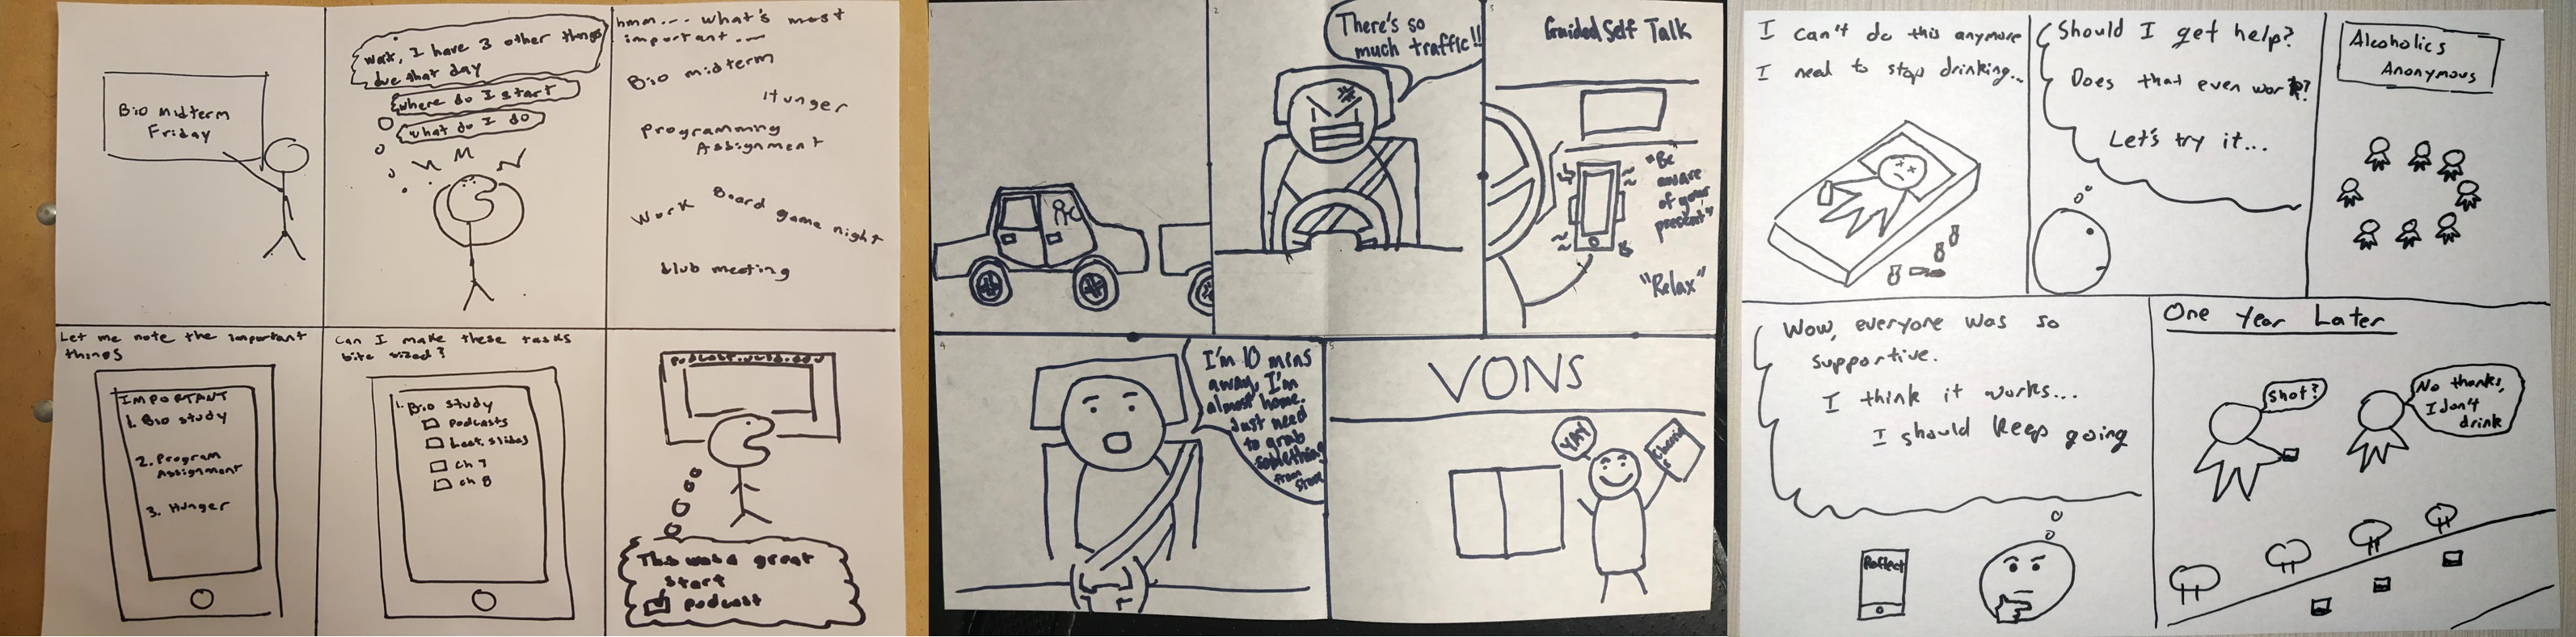 Bio midterm
Friday
wait, I have 3 other things
due that day
where do I start
what do I do
hmm... what's most
important...
Bio midterm
Hunger
Programming
Assignment
Work
Board
game night
club meeting
Let me note the important
things
IMPORTANT
1. Bio study
2. Program
Assignment
3. Hunger
Can I make these tasks
bite sized?
1. Bio study
Podcasts
Lect. slides
ch 7
ch 8
podcast.ucsd.edu
This was a great
start
podcast
1
2
There's so
much traffic!!
3
Guided Self Talk
"Be
aware
of your
present"
"Relax"
4
I'm 10 mins
away, I'm
almost home.
Just need
to grab
something
from
store
5
VONS
YAY!
I can't do this anymore
I need to stop drinking...
Should I get help?
Does that even work?
Let's try it...
Alcoholics
Anonymous
Wow, everyone was so
supportive.
I think it works...
I should keep going
Reflect
One Year Later
Shot?
No thanks,
I don't
drink